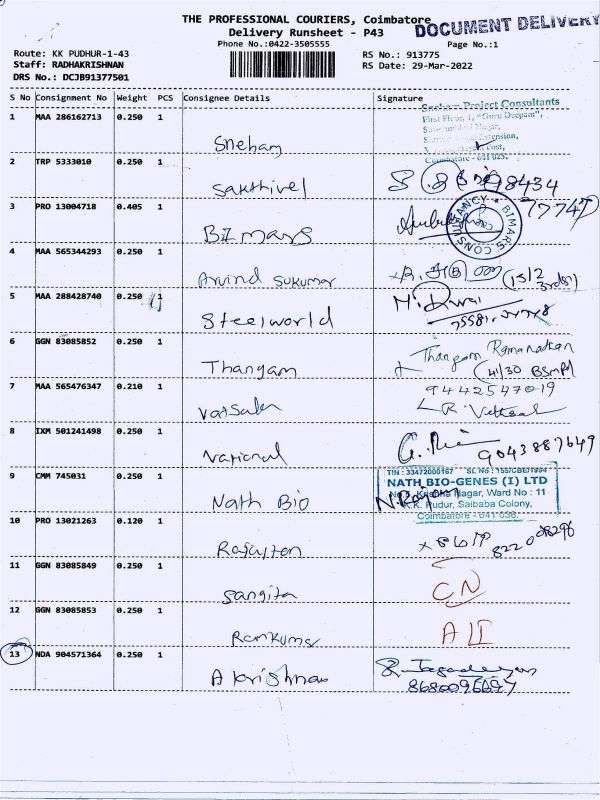 THE PROFESSIONAL COURIERS, Coimbatore
DOCUMENT DELIVERY
Delivery Runsheet - P43
Phone No.:0422-3505555
Page No.:1
Route: KK PUDHUR-1-43
RS No.: 913775
Staff: RADHAKRISHNAN
RS Date: 29-Mar-2022
DRS No.: DCJB91377501
S No Consignment No Weight PCS Consignee Details Signature
Sneham Project Consultants
First Floor, 1, "Guru Deepam",
1 MAA 286162713 0.250 1
Extension,
Coimbatore - 641 025.
Sneham
2 TRP 5333010 0.250 1
98434
Sakthivel
77747
3 PRO 13004718 0.405 1
BIMARS CONSULTANCY
BIMARS
4 MAA 565344293 0.250 1
Arvind Sukumar
(15/2
5 MAA 288428740 0.250 1
Steelworld
6 GGN 83085852 0.250 1
Thangam Ramanathan
Thangam
41/30 BSMPL
7 MAA 565476347 0.210 1
9442547019
Vatsala
R. Vathsal
8 IXM 501241498 0.250 1
National
9043887649
9 CMM 745031 0.250 1
TIN : 33472000167 SL No : 155/CBE/1994
NATH BIO-GENES (I) LTD
Nath Bio
N. Rajan
Krishna Nagar, Ward No : 11
K.K. Pudur, Saibaba Colony,
Coimbatore - 641 038.
10 PRO 13021263 0.120 1
8220
11 GGN 83085849 0.250 1
CN
Sangita
12 GGN 83085853 0.250 1
ALI
Ramkumar
13 NDA 904571364 0.250 1
A krishnan
8680096697